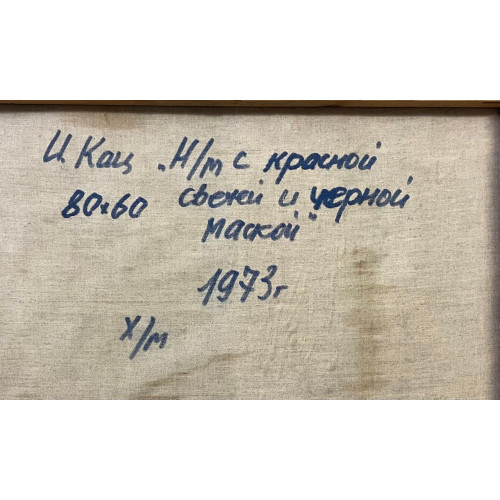 И. Кац „Н/м с красной
80×60 свечей и черной
маской"
1973г
х/м